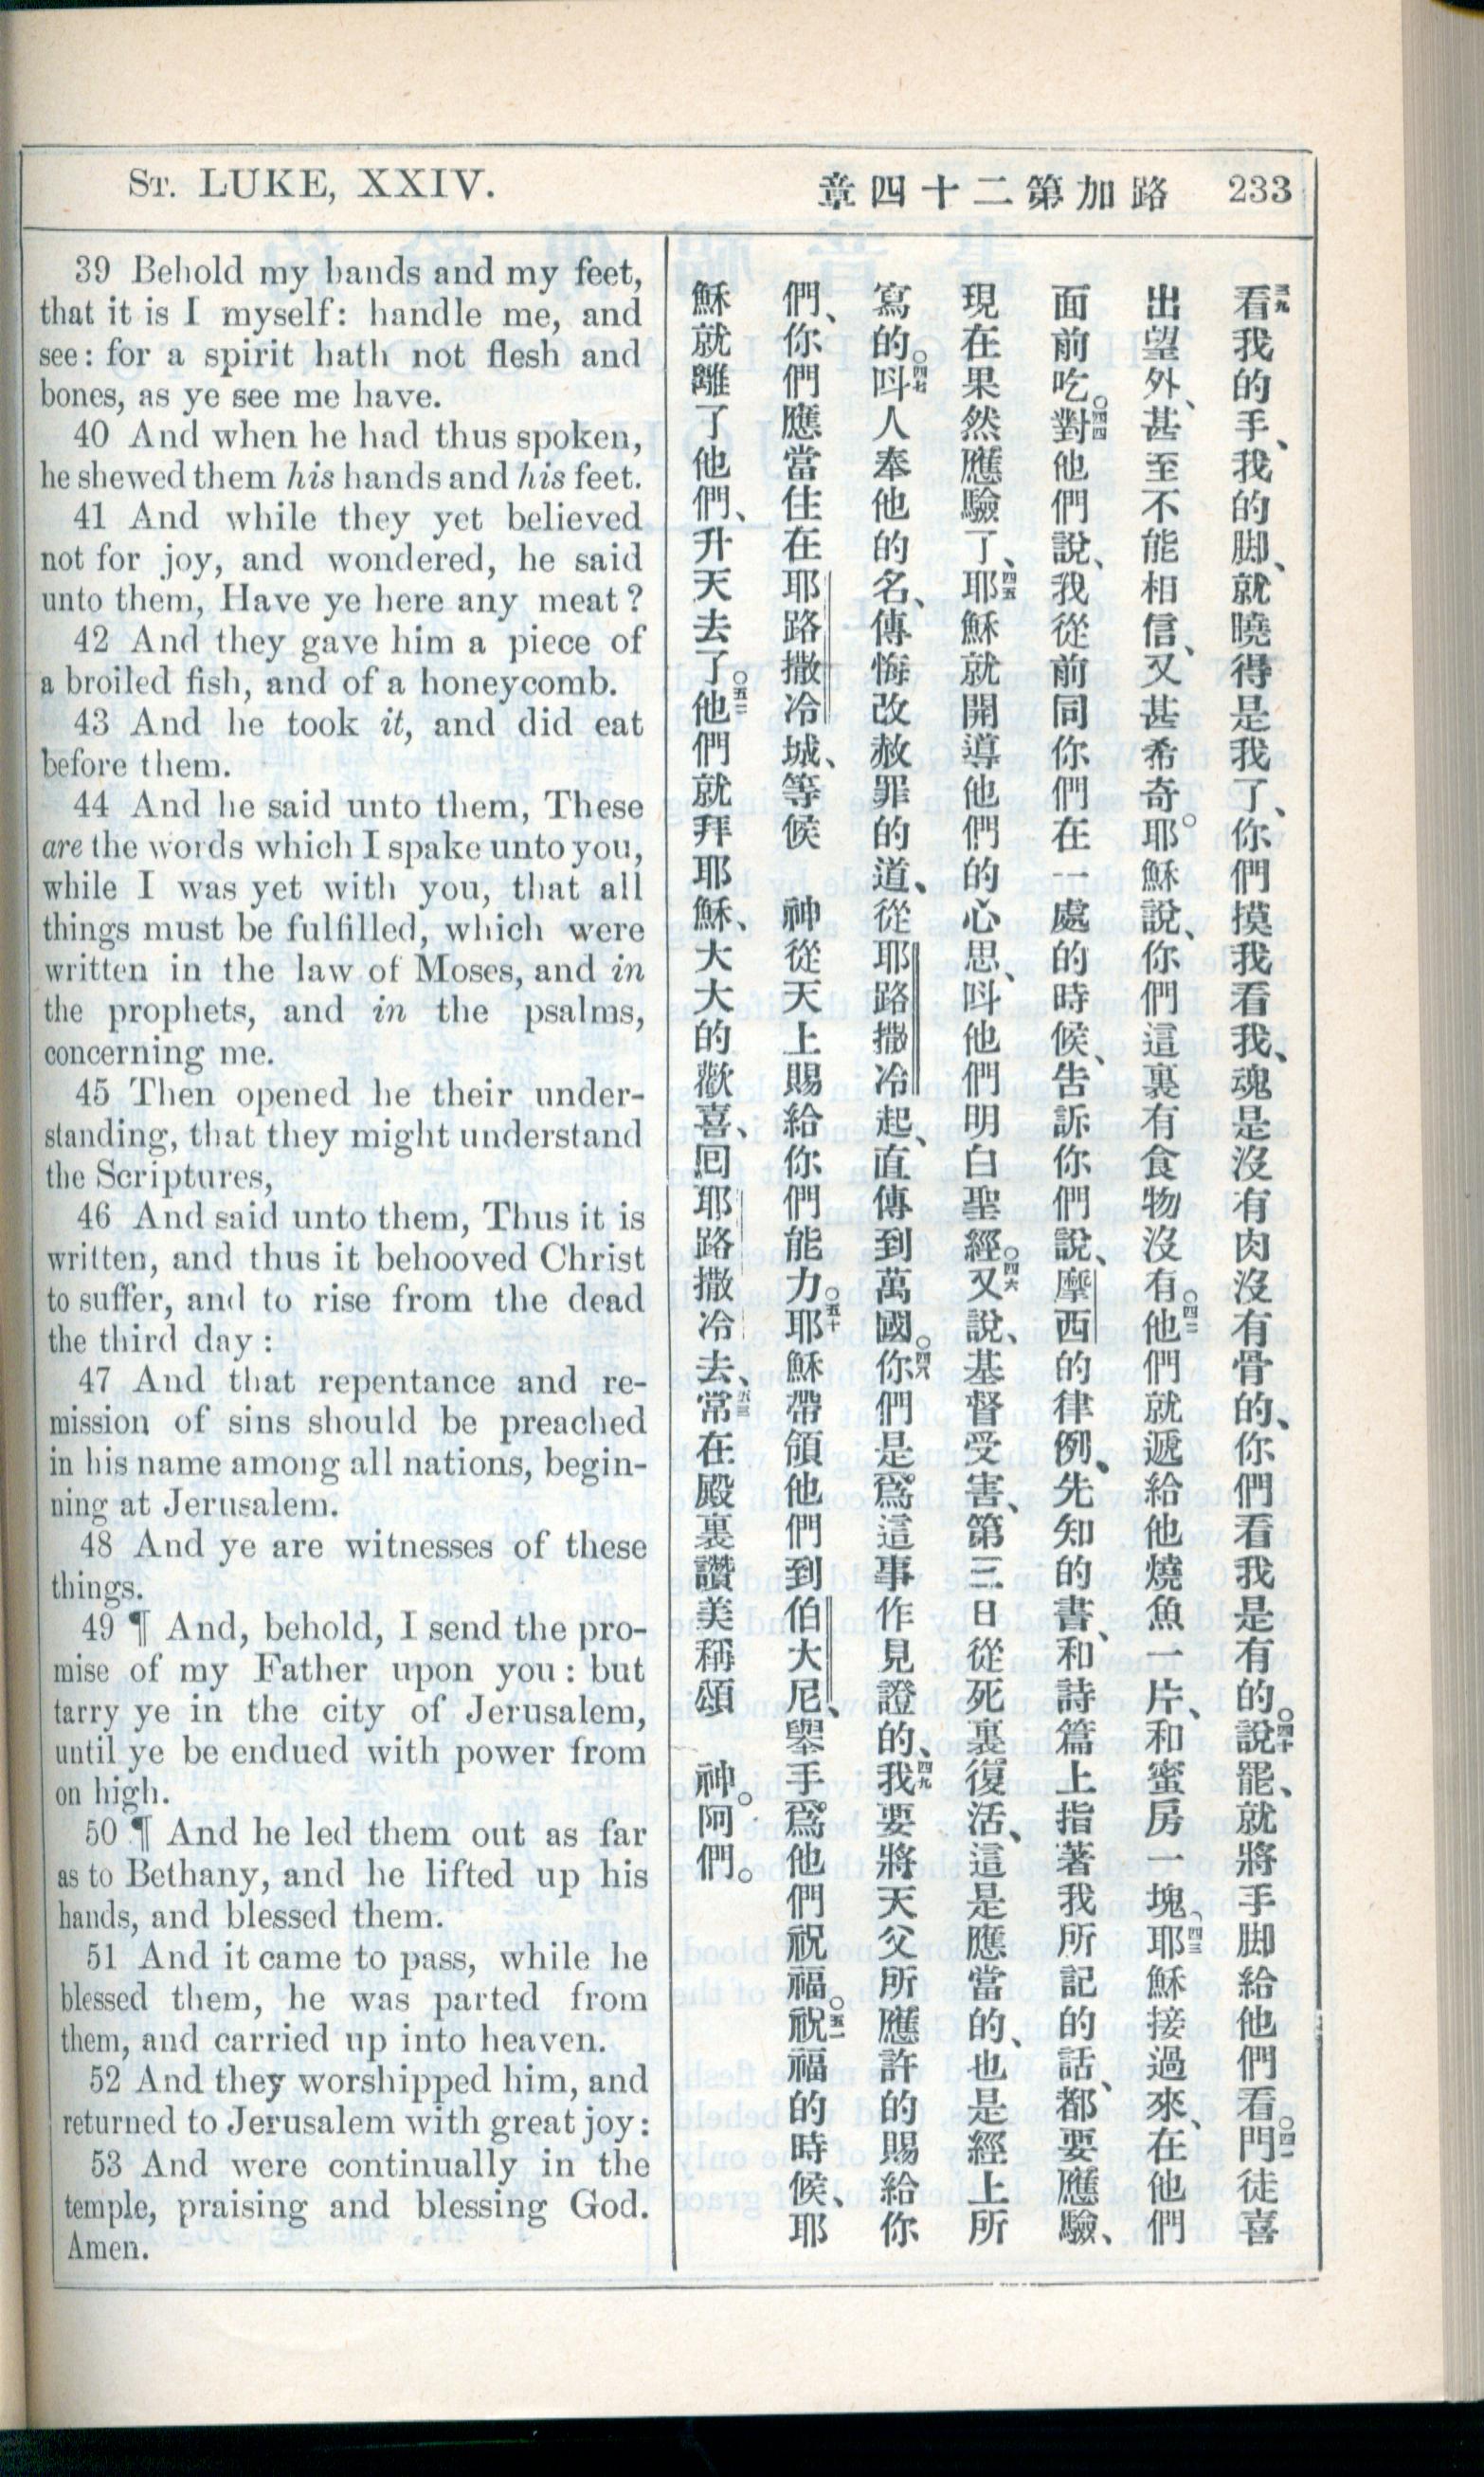 St. LUKE, XXIV.
章四十二第加路 233
39 Behold my hands and my feet,
that it is I myself: handle me, and
see: for a spirit hath not flesh and
bones, as ye see me have.
40 And when he had thus spoken,
he shewed them his hands and his feet.
41 And while they yet believed
not for joy, and wondered, he said
unto them, Have ye here any meat?
42 And they gave him a piece of
a broiled fish, and of a honeycomb.
43 And he took it, and did eat
before them.
44 And he said unto them, These
are the words which I spake unto you,
while I was yet with you, that all
things must be fulfilled, which were
written in the law of Moses, and in
the prophets, and in the psalms,
concerning me.
45 Then opened he their under-
standing, that they might understand
the Scriptures,
46 And said unto them, Thus it is
written, and thus it behooved Christ
to suffer, and to rise from the dead
the third day:
47 And that repentance and re-
mission of sins should be preached
in his name among all nations, begin-
ning at Jerusalem.
48 And ye are witnesses of these
things.
49 ¶ And, behold, I send the pro-
mise of my Father upon you: but
tarry ye in the city of Jerusalem,
until ye be endued with power from
on high.
50 ¶ And he led them out as far
as to Bethany, and he lifted up his
hands, and blessed them.
51 And it came to pass, while he
blessed them, he was parted from
them, and carried up into heaven.
52 And they worshipped him, and
returned to Jerusalem with great joy:
53 And were continually in the
temple, praising and blessing God.
Amen.
三九看我的手、我的脚、就曉得是我了、你們摸我看我、魂是沒有肉沒有骨的、你們看我是有的。四十說罷、就將手脚給他們看。四一門徒喜
出望外、甚至不能相信、又甚希奇。耶穌說、你們這裏有食物沒有。四二他們就遞給他燒魚一片、和蜜房一塊、四三耶穌接過來、在他們
面前吃。四四對他們說、我從前同你們在一處的時候、告訴你們說、摩西的律例、先知的書、和詩篇上指著我所記的話、都要應驗、
現在果然應驗了、四五耶穌就開導他們的心思、呌他們明白聖經。四六又說、基督受害、第三日從死裏復活、這是應當的、也是經上所
寫的。四七呌人奉他的名、傳悔改赦罪的道、從耶路撒冷起、直傳到萬國。四八你們是爲這事作見證的、四九我要將天父所應許的賜給你
們、你們應當住在耶路撒冷城、等候 神從天上賜給你們能力。五十耶穌帶領他們到伯大尼、舉手爲他們祝福。五一祝福的時候、耶
穌就離了他們、升天去了。五二他們就拜耶穌、大大的歡喜、回耶路撒冷去、五三常在殿裏讚美稱頌 神。阿們。